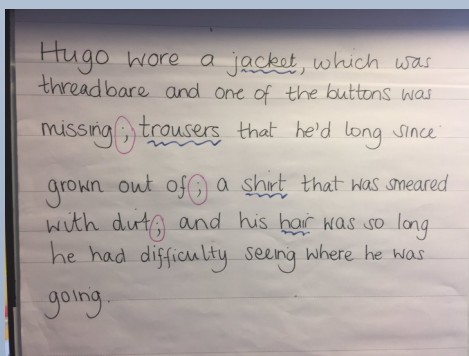 Hugo wore a jacket, which was
threadbare and one of the buttons was
missing; trousers that he'd long since
grown out of; a shirt that was smeared
with dirt; and his hair was so long
he had difficulty seeing where he was
going.